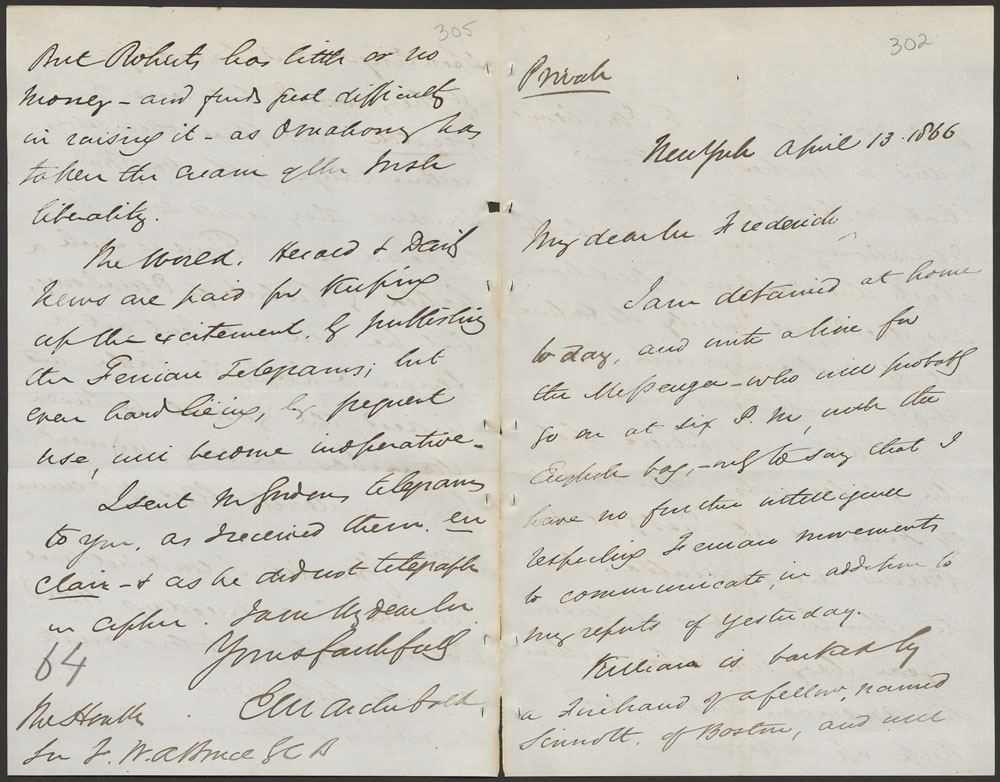 305
But Roberts has little or no
money – and finds great difficulty
in raising it – as Omahony has
taken the cream of the Irish
liberality.
The World. Herald & Daily
News are paid for keeping
up the excitement, by publishing
the Fenian Telegrams; but
even hard lieing, by frequent
use, will become inoperative –
I sent Mr telegrams
to you, as I received them. en
clair – & as he did not telegraph
in cipher. I am My dear Sir
Yours faithfully
E M Archibald
64
The Honble
Sir F. W. A Bruce G C B
302
Private
New York April 13. 1866
My dear Sir Frederick
I am detained at home
to day, and write a line for
the Messenger – who will probably
go on at six P. M, with the
English bag, – only to say that I
have no further intelligence
respecting Fenian movements
to communicate, in addition to
my reports of yesterday.
Killian is backed by
a Firebrand of a fellow named
Sinnott. of Boston, and will